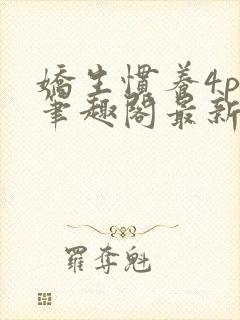 嬌生慣養4p
筆趣閣最新
羅奪魁